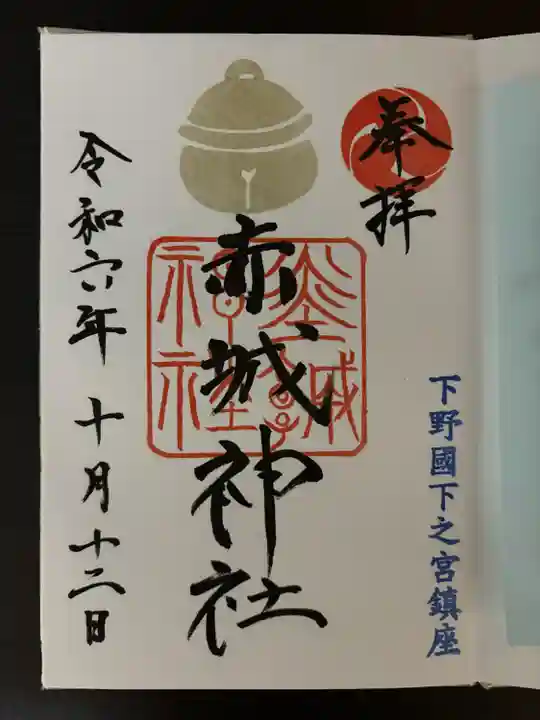 奉拝
下野國下之宮鎮座
赤城神社
令和六年十月十二日